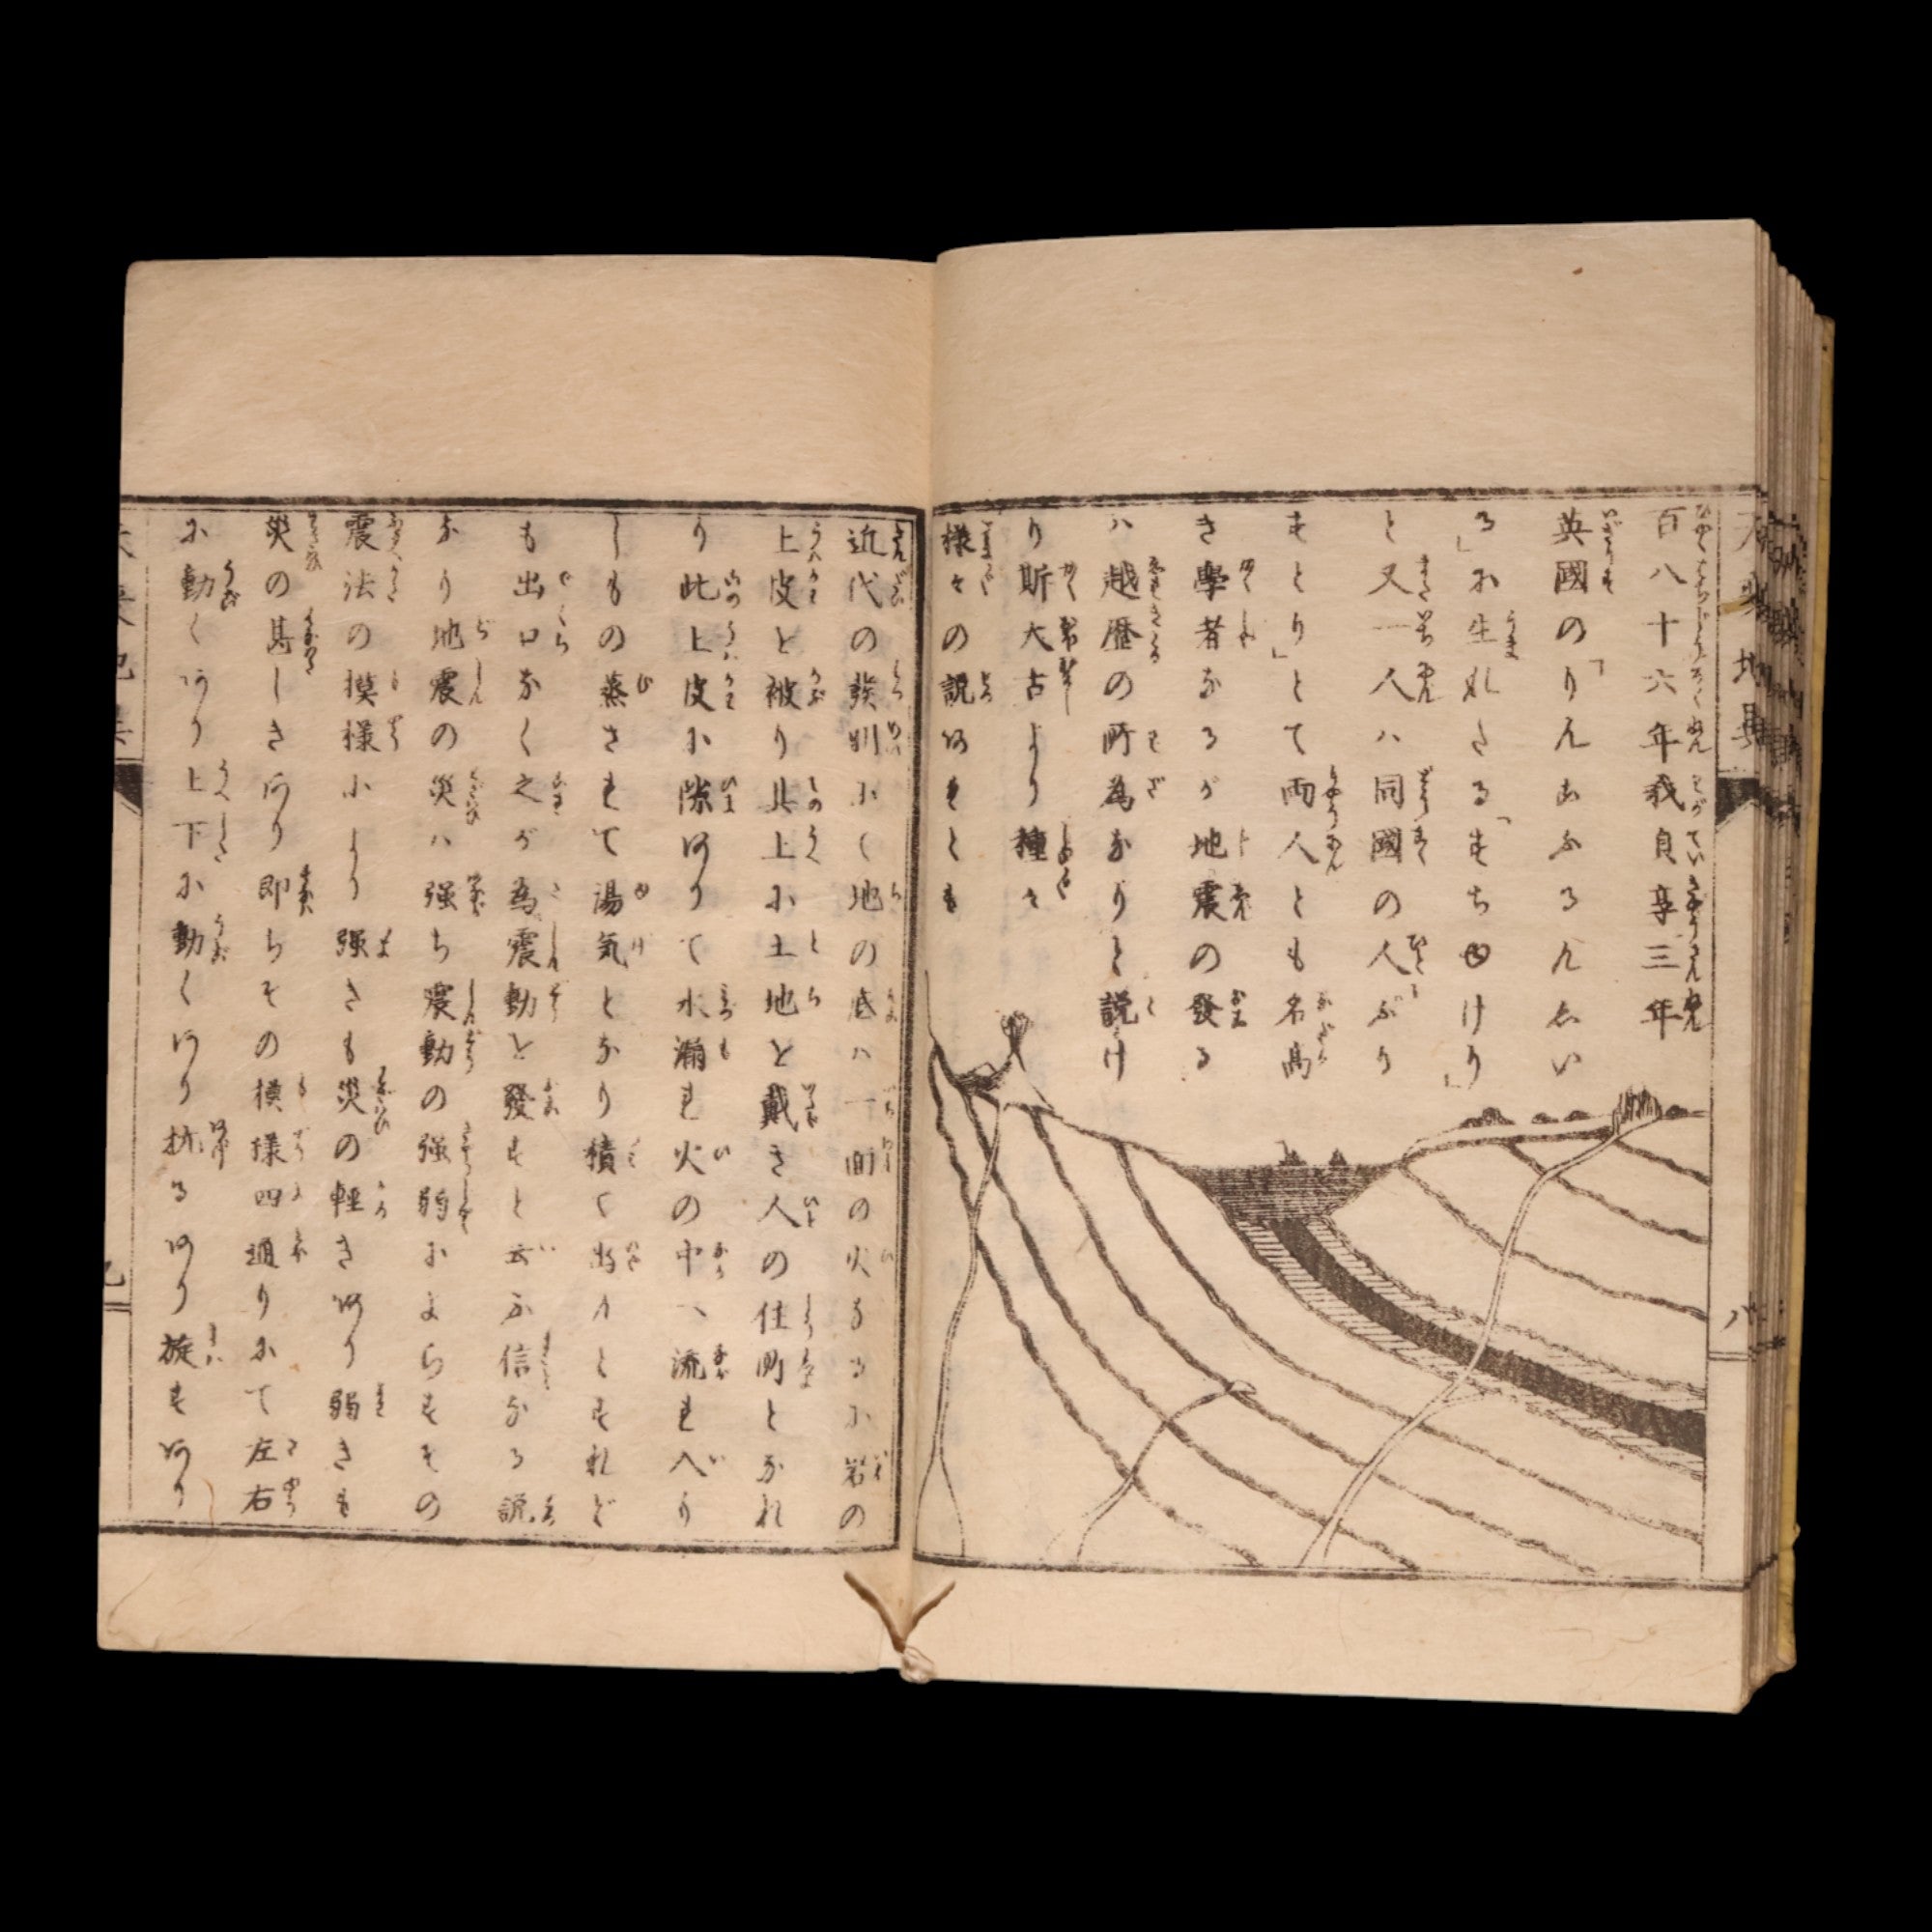 百八十六年我貞享三年
英國の「りんこふるんえい
る」に生れたる「すちゆけり」
と又一人ハ同國の人「ぶり
すとり」とて両人とも名髙
き學者なるが地震の發る
ハ越歴の所為なりと説け
り斯大古より種々
様々の説あれとも
近代の発明にて地の底ハ一面の火なるに岩の
上皮を被り其上に土地を戴き人の住所となれ
り此上皮に隙ありて水漏れ火の中へ流れ入り
しもの蒸されて湯気となり積て出んとすれど
も出口なく之が為震動を發すと云ふ信なる説
なり地震の災ハ强ち震動の强弱によらすその
震法の摸様により强きも災の軽きあり弱きも
災の甚しきあり即ちその模様四通りにて左右
に動くあり上下に動くあり抗るあり旋すあり
天変地異
八